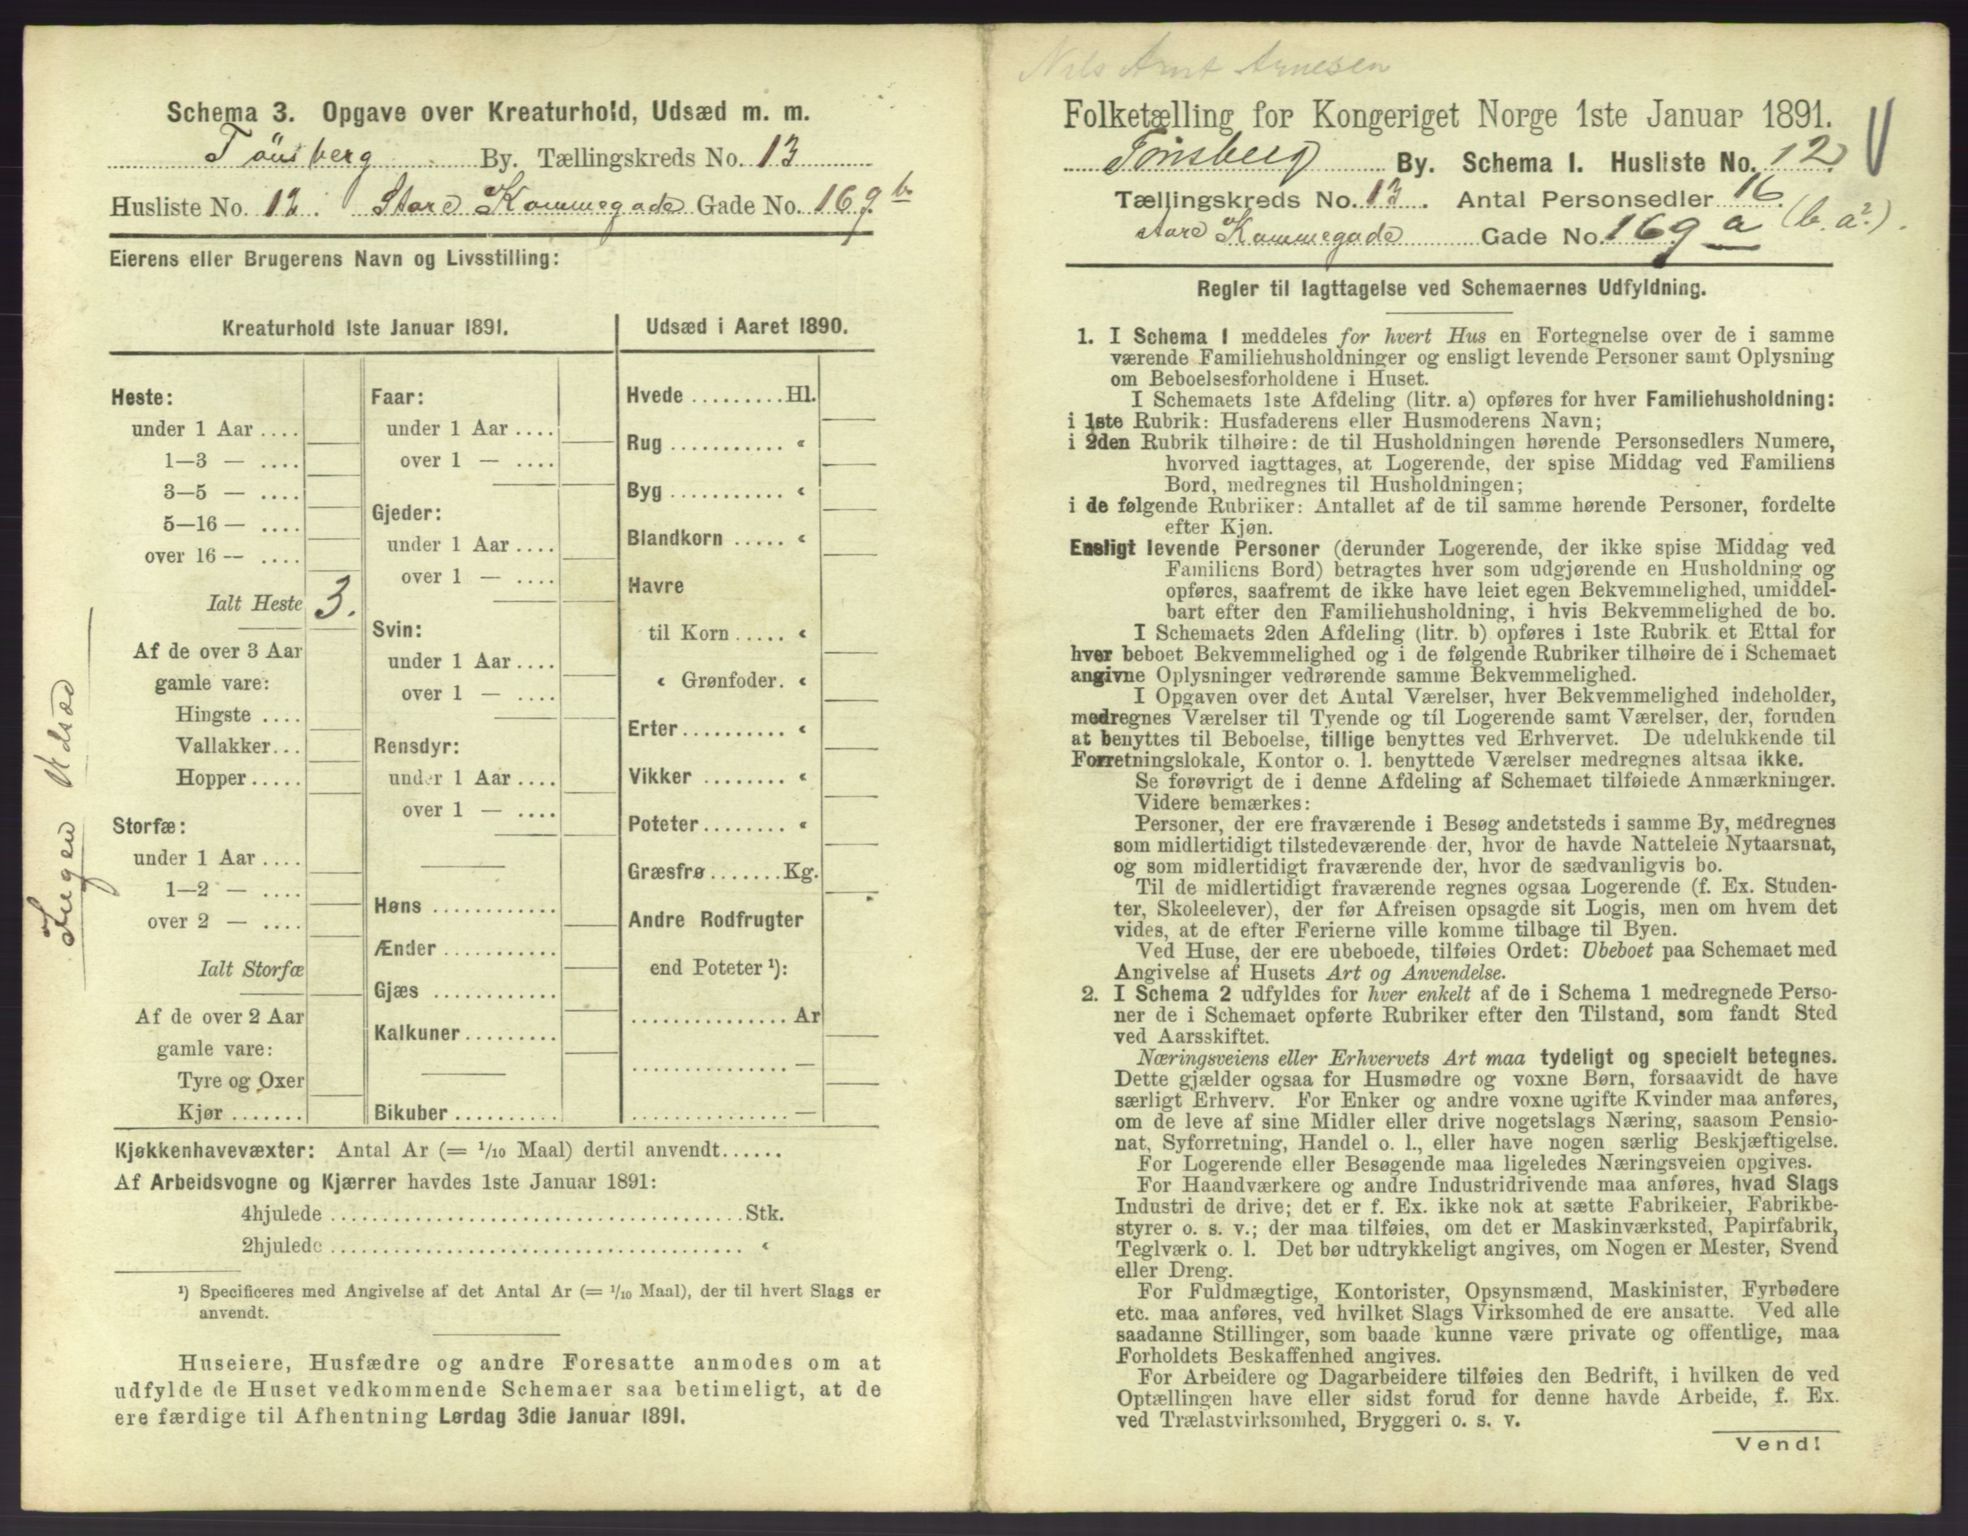 Schema 3. Opgave over Kreaturhold, Udsæd m. m.
Tönsberg By. Tællingskreds No. 13
Husliste No. 12. Store Kammegade Gade No. 169 b
Eierens eller Brugerens Navn og Livsstilling:
Kreaturhold 1ste Januar 1891.
Heste:
under 1 Aar ....
1—3 — ....
3—5 — ....
5—16 — ....
over 16 — ....
Ialt Heste 3.
Af de over 3 Aar
gamle vare:
Hingste ....
Vallakker...
Hopper.....
Storfæ:
under 1 Aar ....
1—2 — ....
over 2 — ....
Ialt Storfæ
Af de over 2 Aar
gamle vare:
Tyre og Oxer
Kjør .......
Faar:
under 1 Aar ....
over 1 — ....
Gjeder:
under 1 Aar ....
over 1 — ....
Svin:
under 1 Aar ....
over 1 — ....
Rensdyr:
under 1 Aar ....
over 1 — ....
Høns ............
Ænder ...........
Gjæs ............
Kalkuner.........
Bikuber ..........
Udsæd i Aaret 1890.
Hvede .........Hl.
Rug ........... «
Byg ........... «
Blandkorn ..... «
Havre
til Korn ..... «
« Grønfoder. «
Erter.......... «
Vikker ........ «
Poteter........ «
Græsfrø .......Kg.
Andre Rodfrugter
end Poteter ¹):
............... Ar
............... —
............... —
Ingen Udsæd
Kjøkkenhavevæxter: Antal Ar (= 1/10 Maal) dertil anvendt......
Af Arbeidsvogne og Kjærrer havdes 1ste Januar 1891:
4hjulede ........................................Stk.
2hjulede ........................................ «
¹) Specificeres med Angivelse af det Antal Ar (= 1/10 Maal), der til hvert Slags er
anvendt.
Huseiere, Husfædre og andre Foresatte anmodes om at
udfylde de Huset vedkommende Schemaer saa betimeligt, at de
ere færdige til Afhentning Lørdag 3die Januar 1891.
Nils Arnt Arnesen
Folketælling for Kongeriget Norge 1ste Januar 1891.
Tönsberg By. Schema I. Husliste No. 12.
Tællingskreds No. 13. Antal Personsedler 16.
Store Kammegade Gade No. 169 a (b. a².).
Regler til Iagttagelse ved Schemaernes Udfyldning.
1. I Schema 1 meddeles for hvert Hus en Fortegnelse over de i samme
værende Familiehusholdninger og ensligt levende Personer samt Oplysning
om Beboelsesforholdene i Huset.
I Schemaets 1ste Afdeling (litr. a) opføres for hver Familiehusholdning:
i 1ste Rubrik: Husfaderens eller Husmoderens Navn;
i 2den Rubrik tilhøire: de til Husholdningen hørende Personsedlers Numere,
hvorved iagttages, at Logerende, der spise Middag ved Familiens
Bord, medregnes til Husholdningen;
i de følgende Rubriker: Antallet af de til samme hørende Personer, fordelte
efter Kjøn.
Ensligt levende Personer (derunder Logerende, der ikke spise Middag ved
Familiens Bord) betragtes hver som udgjørende en Husholdning og
opføres, saafremt de ikke have leiet egen Bekvemmelighed, umiddel-
bart efter den Familiehusholdning, i hvis Bekvemmelighed de bo.
I Schemaets 2den Afdeling (litr. b) opføres i 1ste Rubrik et Ettal for
hver beboet Bekvemmelighed og i de følgende Rubriker tilhøire de i Schemaet
angivne Oplysninger vedrørende samme Bekvemmelighed.
I Opgaven over det Antal Værelser, hver Bekvemmelighed indeholder,
medregnes Værelser til Tyende og til Logerende samt Værelser, der, foruden
at benyttes til Beboelse, tillige benyttes ved Erhvervet. De udelukkende til
Forretningslokale, Kontor o. l. benyttede Værelser medregnes altsaa ikke.
Se forøvrigt de i denne Afdeling af Schemaet tilføiede Anmærkninger.
Videre bemærkes:
Personer, der ere fraværende i Besøg andetsteds i samme By, medregnes
som midlertidigt tilstedeværende der, hvor de havde Natteleie Nytaarsnat,
og som midlertidigt fraværende der, hvor de sædvanligvis bo.
Til de midlertidigt fraværende regnes ogsaa Logerende (f. Ex. Studen-
ter, Skoleelever), der før Afreisen opsagde sit Logis, men om hvem det
vides, at de efter Ferierne ville komme tilbage til Byen.
Ved Huse, der ere ubeboede, tilføies Ordet: Ubeboet paa Schemaet med
Angivelse af Husets Art og Anvendelse.
2. I Schema 2 udfyldes for hver enkelt af de i Schema 1 medregnede Perso-
ner de i Schemaet opførte Rubriker efter den Tilstand, som fandt Sted
ved Aarsskiftet.
Næringsveiens eller Erhvervets Art maa tydeligt og specielt betegnes.
Dette gjælder ogsaa for Husmødre og voxne Børn, forsaavidt de have
særligt Erhverv. For Enker og andre voxne ugifte Kvinder maa anføres,
om de leve af sine Midler eller drive nogetslags Næring, saasom Pensio-
nat, Syforretning, Handel o. l., eller have nogen særlig Beskjæftigelse.
For Logerende eller Besøgende maa ligeledes Næringsveien opgives.
For Haandværkere og andre Industridrivende maa anføres, hvad Slags
Industri de drive; det er f. Ex. ikke nok at sætte Fabrikeier, Fabrikbe-
styrer o. s. v.; der maa tilføies, om det er Maskinværksted, Papirfabrik,
Teglværk o. l. Det bør udtrykkeligt angives, om Nogen er Mester, Svend
eller Dreng.
For Fuldmægtige, Kontorister, Opsynsmænd, Maskinister, Fyrbødere
etc. maa anføres, ved hvilket Slags Virksomhed de ere ansatte. Ved alle
saadanne Stillinger, som baade kunne være private og offentlige, maa
Forholdets Beskaffenhed angives.
For Arbeidere og Dagarbeidere tilføies den Bedrift, i hvilken de ved
Optællingen have eller sidst forud for denne havde Arbeide, f. Ex.
ved Trælastvirksomhed, Bryggeri o. s. v.
Vend!